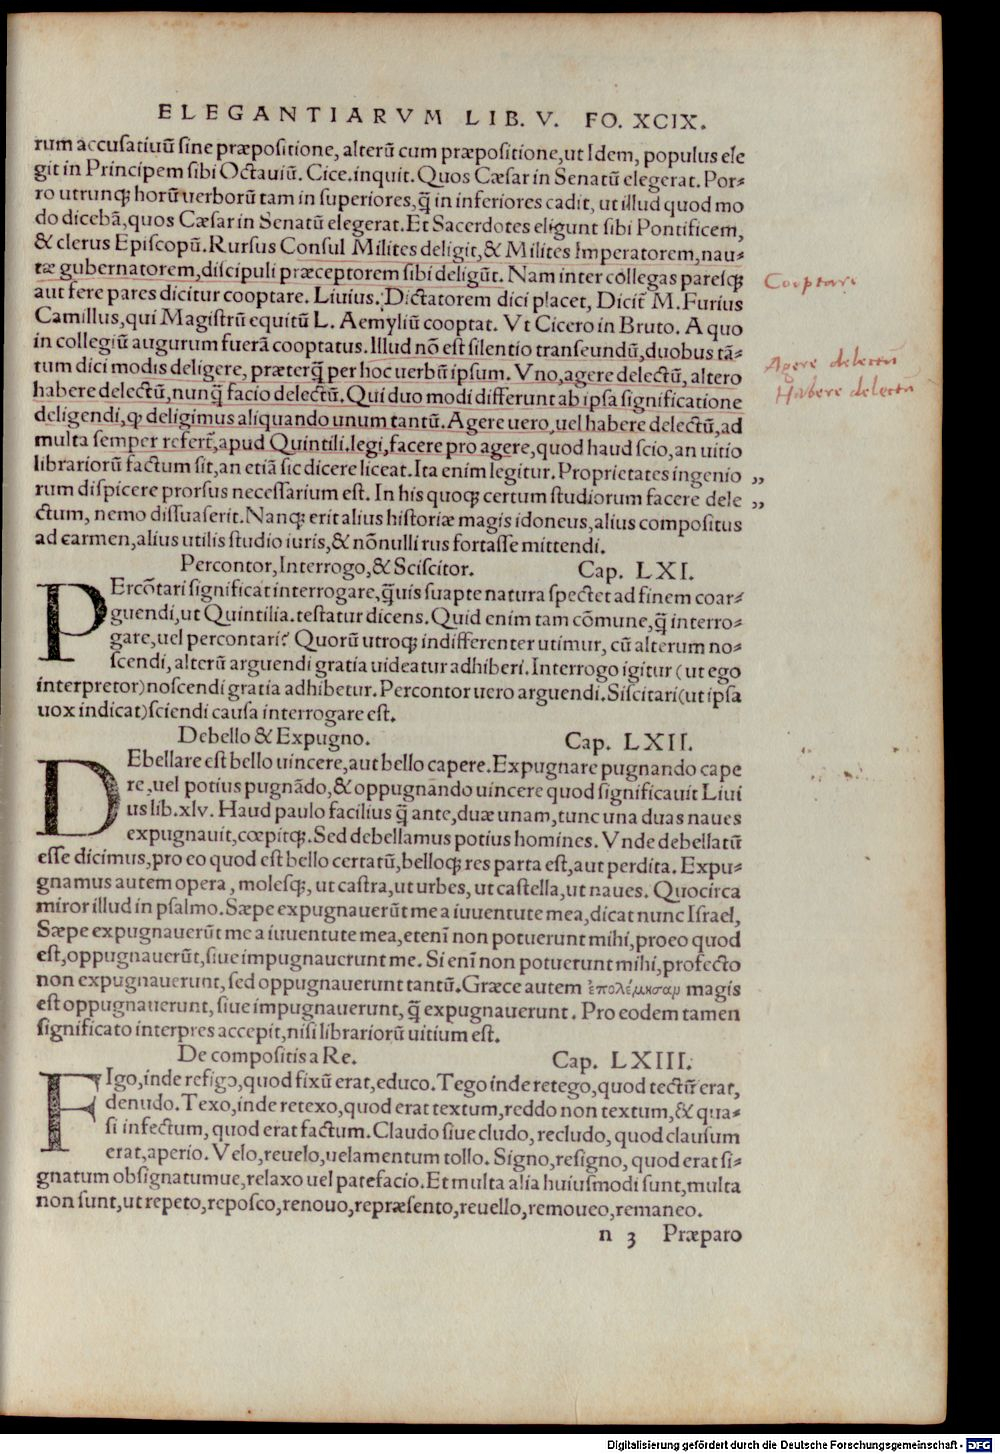 ELEGANTIARVM LIB. V. FO. XCIX.
rum accusatiuū sine præpositione, alterū cum præpositione, ut Idem, populus ele
git in Principem sibi Octauiū. Cice. inquit. Quos Cæsar in Senatū elegerat. Por-
ro utrunq; horū uerborū tam in superiores, q̃ in inferiores cadit, ut illud quod mo
do dicebā, quos Cæsar in Senatū elegerat. Et Sacerdotes eligunt sibi Pontificem,
& clerus Episcopū. Rursus Consul Milites deligit, & Milites Imperatorem, nau-
tæ gubernatorem, discipuli præceptorem sibi deligūt. Nam inter collegas paresq;
Cooptare
aut fere pares dicitur cooptare. Liuius. Dictatorem dici placet, Dicit̃ M. Furius
Camillus, qui Magistrū equitū L. Aemyliū cooptat. Vt Cicero in Bruto. A quo
in collegiū augurum fuerā cooptatus. Illud nō est silentio transeundū, duobus tā-
Agere delectū
tum dici modis deligere, præterq̃ per hoc uerbū ipsum. Vno, agere delectū, altero
Habere delectū
habere delectū, nunq̃ facio delectū. Qui duo modi differunt ab ipsa significatione
deligendi, ꝙ deligimus aliquando unum tantū. Agere uero, uel habere delectū, ad
multa semper refert̃, apud Quintili. legi, facere pro agere, quod haud scio, an uitio
librariorū factum sit, an etiā sic dicere liceat. Ita enim legitur. Proprietates ingenio „
rum dispicere prorsus necessarium est. In his quoq; certum studiorum facere dele „
ctum, nemo dissuaserit. Nanq; erit alius historiæ magis idoneus, alius compositus
ad carmen, alius utilis studio iuris, & nōnulli rus fortasse mittendi.
Percontor, Interrogo, & Sciscitor. Cap. LXI.
PErcōtari significat interrogare, q̃uis suapte natura spectet ad finem coar-
guendi, ut Quintilia. testatur dicens. Quid enim tam cōmune, q̃ interro-
gare, uel percontari? Quorū utroq; indifferenter utimur, cū alterum no-
scendi, alterū arguendi gratia uideatur adhiberi. Interrogo igitur (ut ego
interpretor) noscendi gratia adhibetur. Percontor uero arguendi. Siscitari (ut ipsa
uox indicat) sciendi causa interrogare est.
Debello & Expugno. Cap. LXII.
DEbellare est bello uincere, aut bello capere. Expugnare pugnando cape
re, uel potius pugnādo, & oppugnando uincere quod significauit Liui
us lib. xlv. Haud paulo facilius q̃ ante, duæ unam, tunc una duas naues
expugnauit, cœpitq;. Sed debellamus potius homines. Vnde debellatū
esse dicimus, pro eo quod est bello certatū, belloq; res parta est, aut perdita. Expu-
gnamus autem opera, molesq;, ut castra, ut urbes, ut castella, ut naues. Quocirca
miror illud in psalmo. Sæpe expugnauerūt me a iuuentute mea, dicat nunc Israel,
Sæpe expugnauerūt me a iuuentute mea, etenī non potuerunt mihi, pro eo quod
est, oppugnauerūt, siue impugnauerunt me. Si enī non potuerunt mihi, profecto
non expugnauerunt, sed oppugnauerunt tantū. Græce autem ἐπολέμησαμ magis
est oppugnauerunt, siue impugnauerunt, q̃ expugnauerunt. Pro eodem tamen
significato interpres accepit, nisi librariorū uitium est.
De compositis a Re. Cap. LXIII.
FIgo, inde refigo, quod fixū erat, educo. Tego inde retego, quod tectū erat,
denudo. Texo, inde retexo, quod erat textum, reddo non textum, & qua-
si infectum, quod erat factum. Claudo siue cludo, recludo, quod clausum
erat, aperio. Velo, reuelo, uelamentum tollo. Signo, resigno, quod erat si-
gnatum obsignatumue, relaxo uel patefacio. Et multa alia huiusmodi sunt, multa
non sunt, ut repeto, reposco, renouo, repræsento, reuello, remoueo, remaneo.
n 3 Præparo
Digitalisierung gefördert durch die Deutsche Forschungsgemeinschaft - DFG